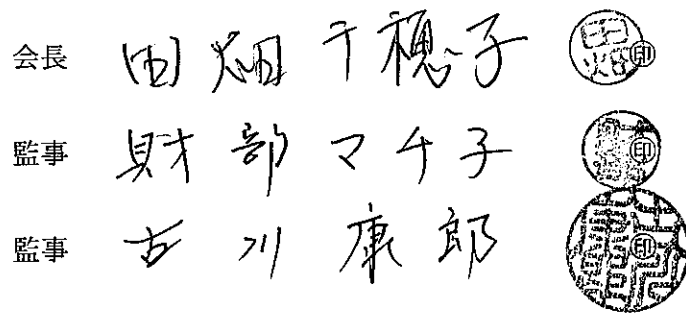 会長 田畑千穂子 ㊞
監事 財部マチ子 ㊞
監事 古川康郎 ㊞